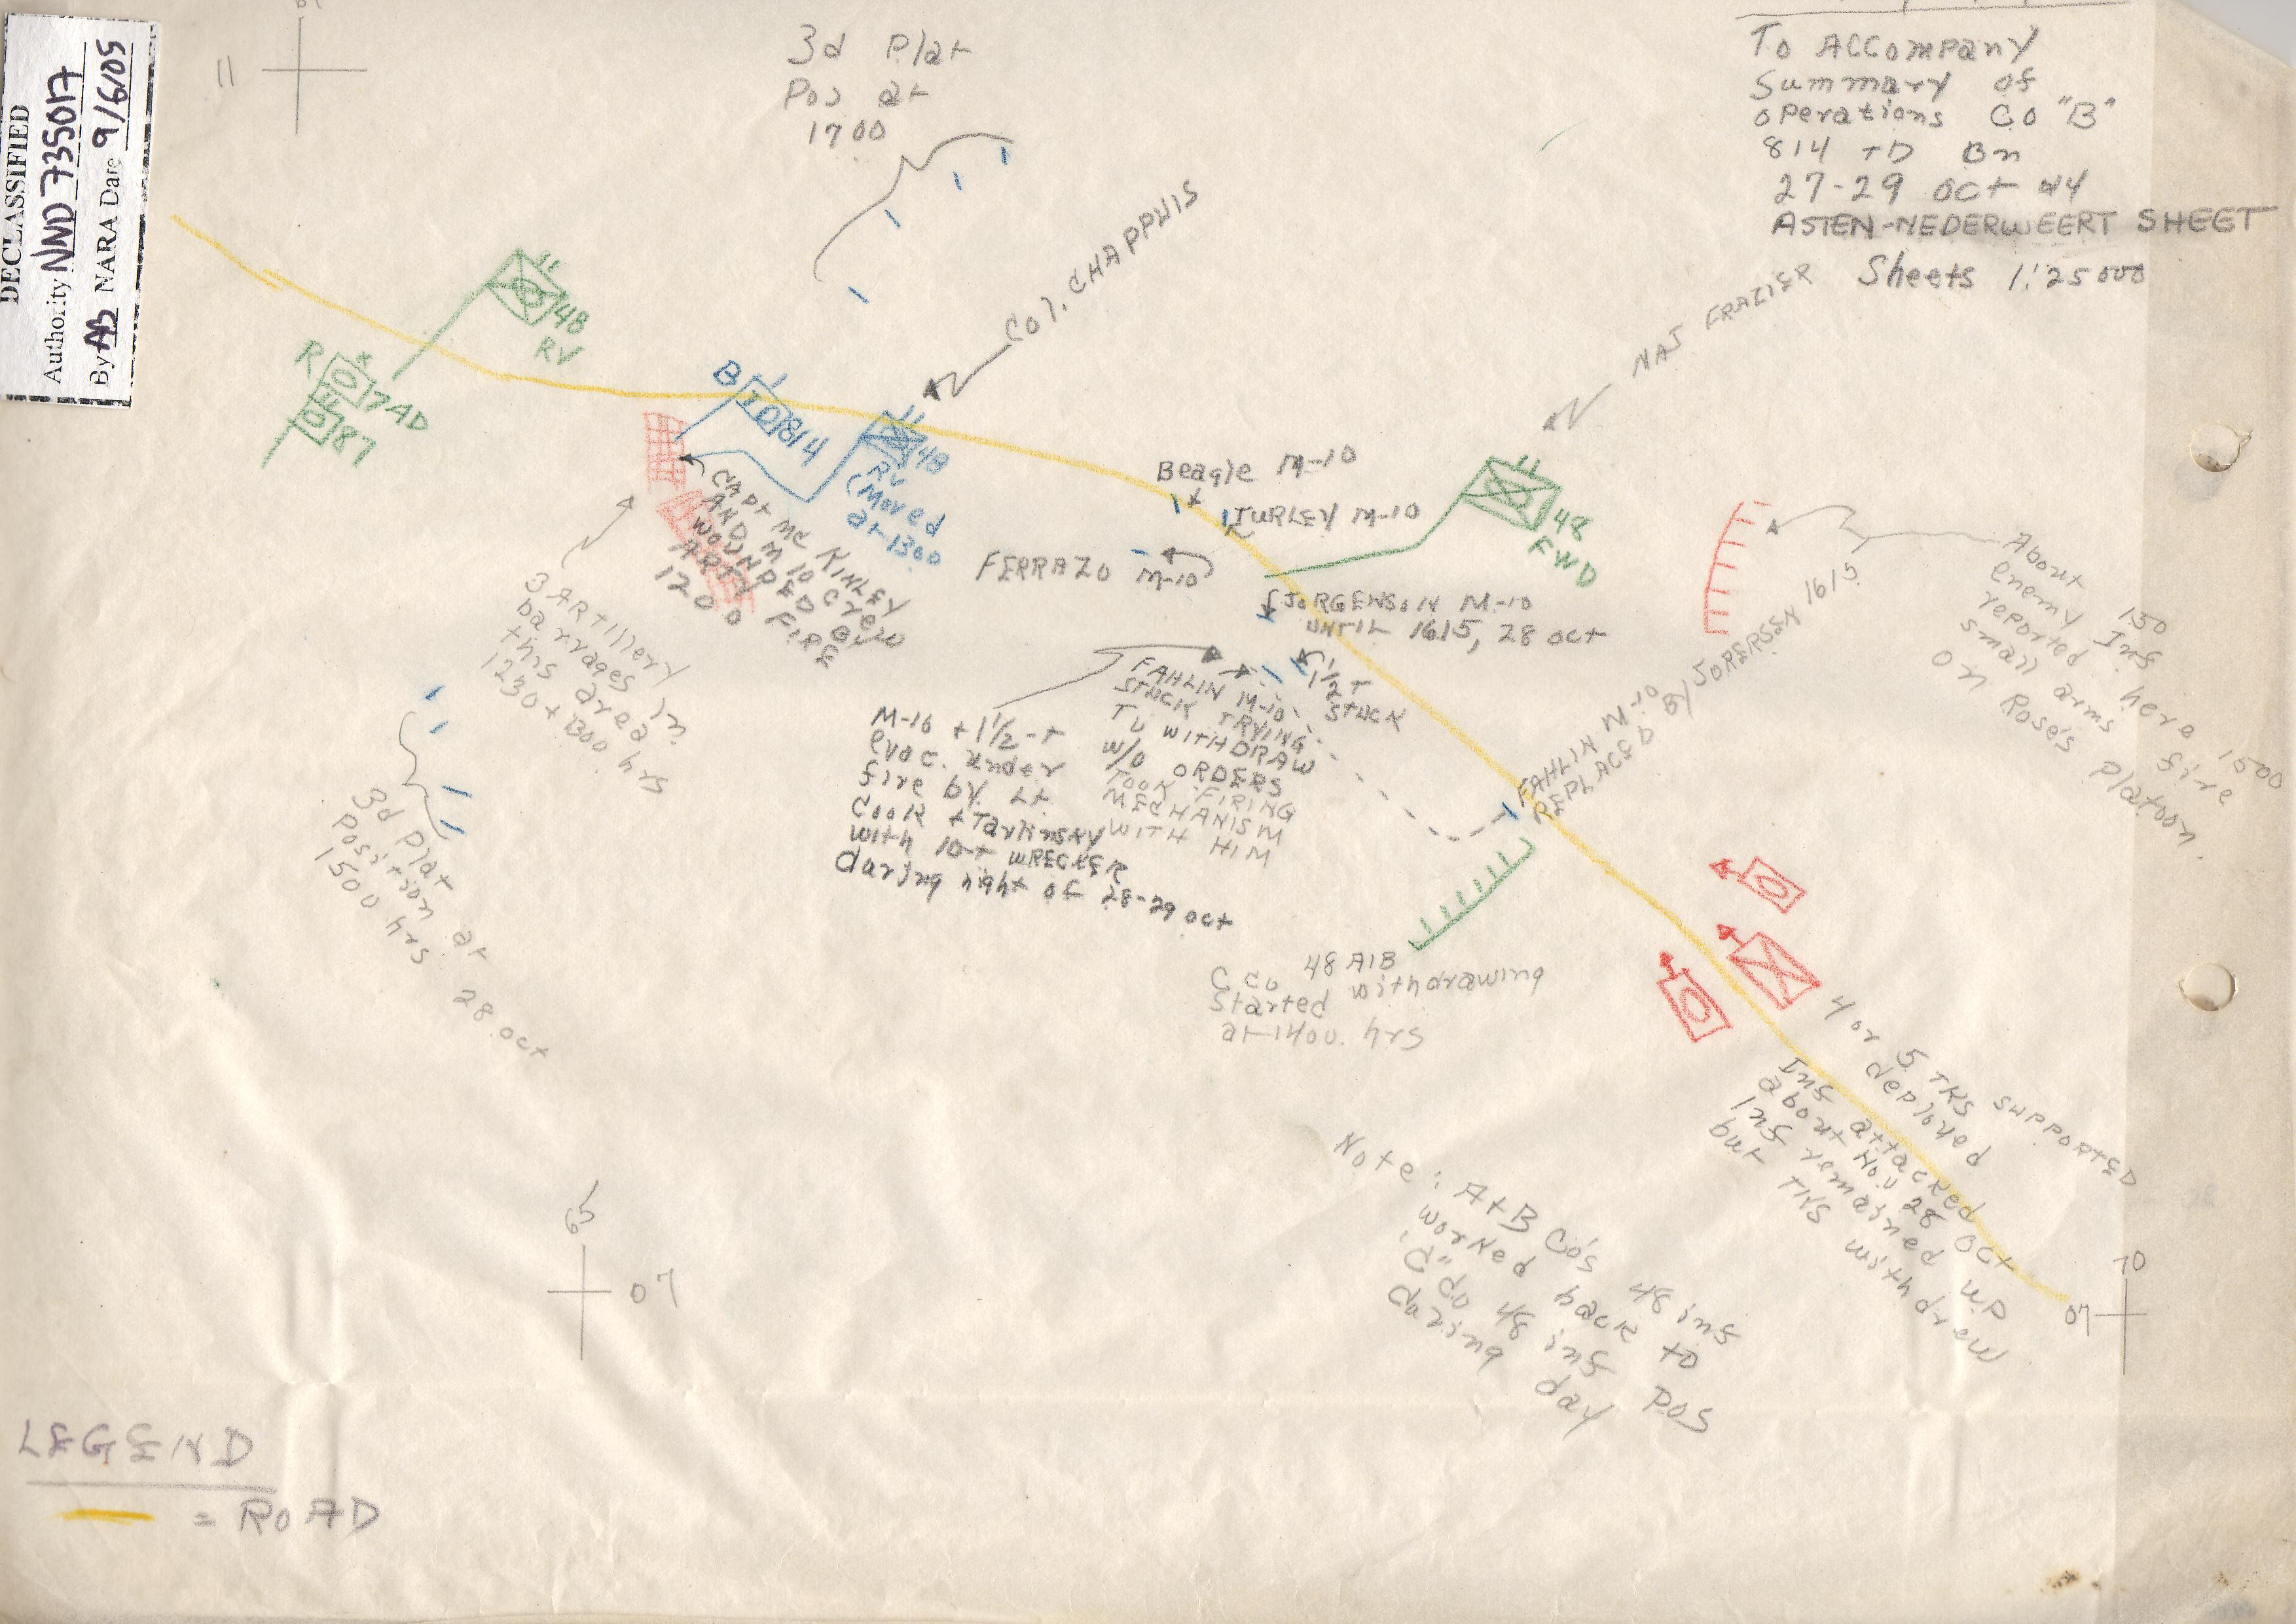 DECLASSIFIED
Authority NND 735017
By AB NARA Date 9/6/05
11
3d Plat
Pos at
1700
To Accompany
Summary of
operations Co "B"
814 TD Bn
27-29 Oct 44
ASTEN-NEDERWEERT SHEET
Sheets 1:25000
Col. CHAPPUIS
MAJ FRAZIER
48
RV
R
17 AD
87
B
TD
814
48
RV
(Moved
at 1300
CAPT MC KINLEY
AND M 10 Crew
WOUNDED BY
ARTY FIRE
1200
3 ARtillery
barrages in
this area
1230 + 1300 hrs
Beagle M-10
TURLEY M-10
FERRAZO M-10
48
FWD
JORGENSON M-10
UNTIL 1615, 28 Oct
1/2 T
STUCK
FAHLIN M-10
STUCK TRYING
TO WITHDRAW
W/O ORDERS
TOOK FIRING
MECHANISM
WITH HIM
M-10 + 1 1/2-T
evac. under
fire by Lt
Cook + Tarkinsky
with 10-T WRECKER
during night of 28-29 Oct
FAHLIN M-10
REPLACED BY JORERSEN 1615
About 150
enemy Inf
reported here 1500
small arms fire
on Rose's platoon.
3d Plat
position at
1500 hrs 28 Oct
C Co 48 AIB
Started withdrawing
at 1400. hrs
4 or 5 TKS SUPPORTED
deployed
Inf attacked
about Noon 28 Oct
Inf remained up
but TKS withdrew
Note: A+B Co's 48 inf
worked back to
"C" Co 48 inf Pos
during day
65
07
70
07
LEGEND
= ROAD